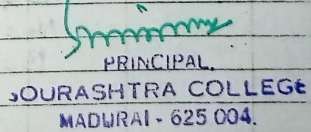 PRINCIPAL,
SOURASHTRA COLLEGE
MADURAI - 625 004.